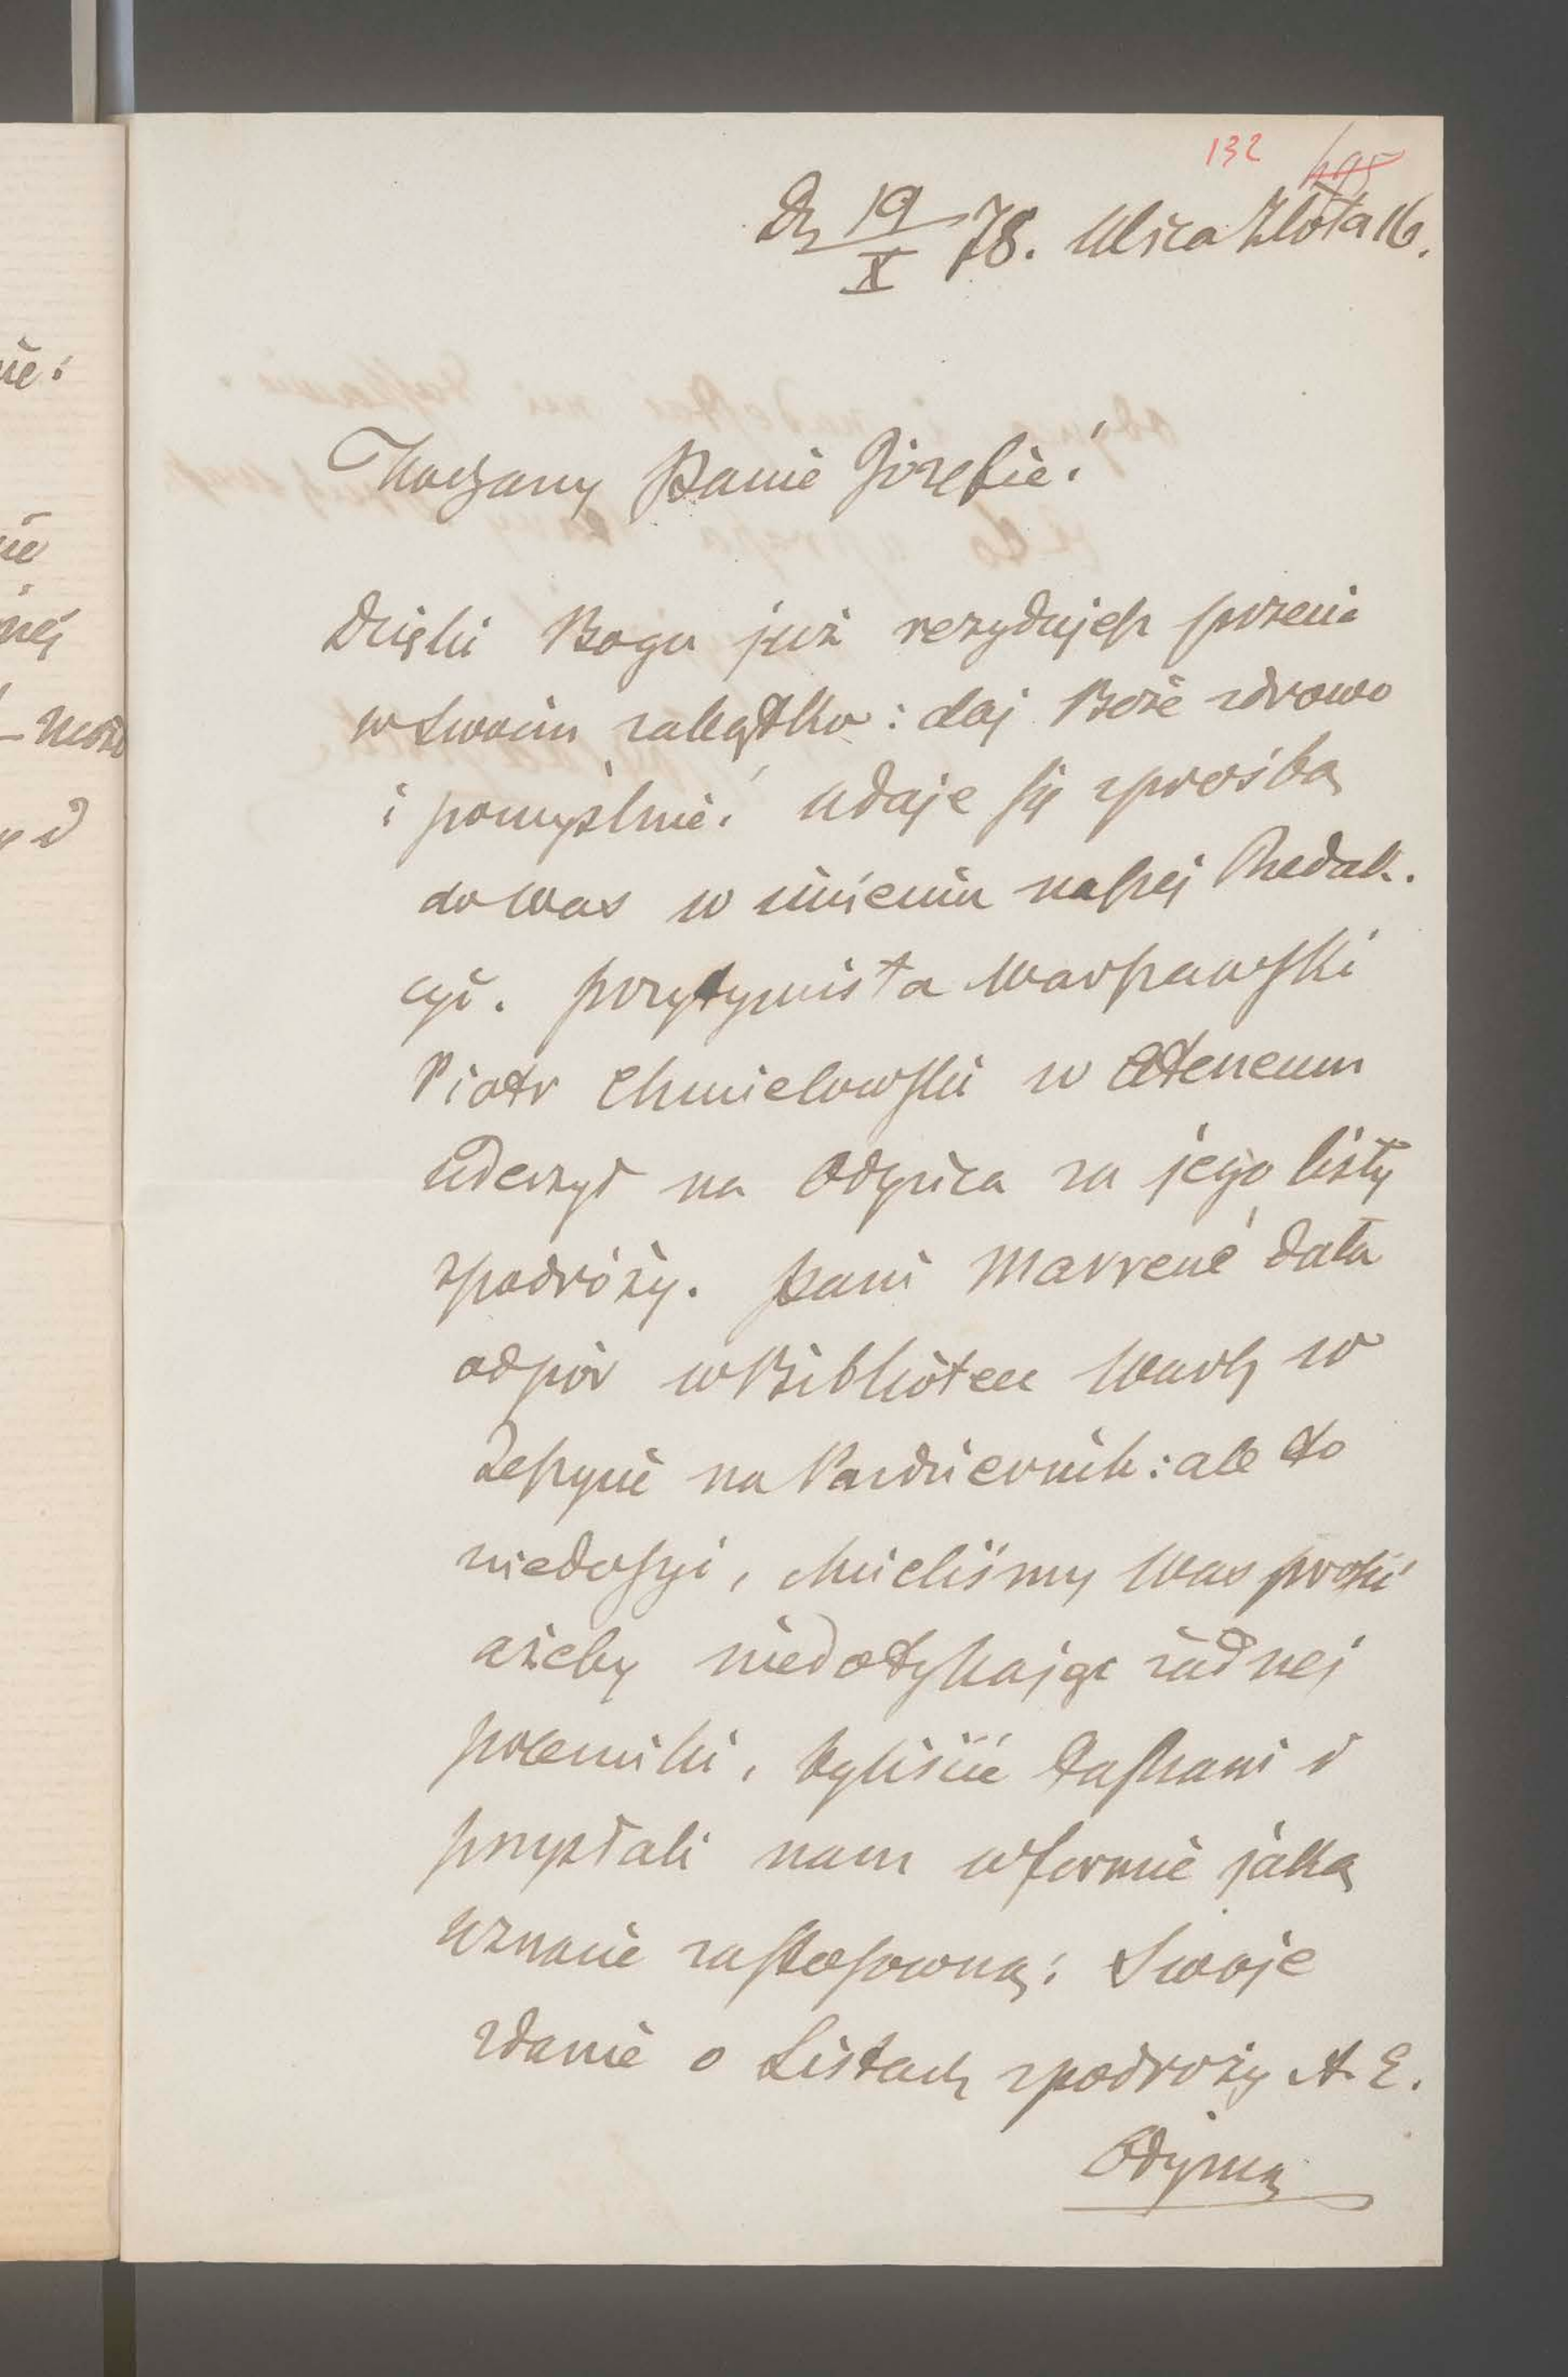 132 195
D. 19/X 78. Ulica Złota 16.
Kochany Panie Józefie!
Dzięki Bogu już rezydujesz przecie
w swoim zakątku: daj Boże zdrowo
i pomyślnie! Udaje się z prośbą
do Was w imieniu naszej Redak.
cyi. Pozytywista Warszawski
Piotr Chmielowski w Ateneum
uderzył na Odyńca za jego listy
z podróży. Pani Marrené dała
odpór w Bibliotece Warsz w
Zeszycie na Październik: ale to
niedosyć, chcieliśmy Was prosić
ażeby niedotykając żadnej
polemiki, byliście łaskawi i
przysłali nam w formie jaką
uznacie zastosowną: Swoje
zdanie o Listach z podróży A. E.
Odyńca